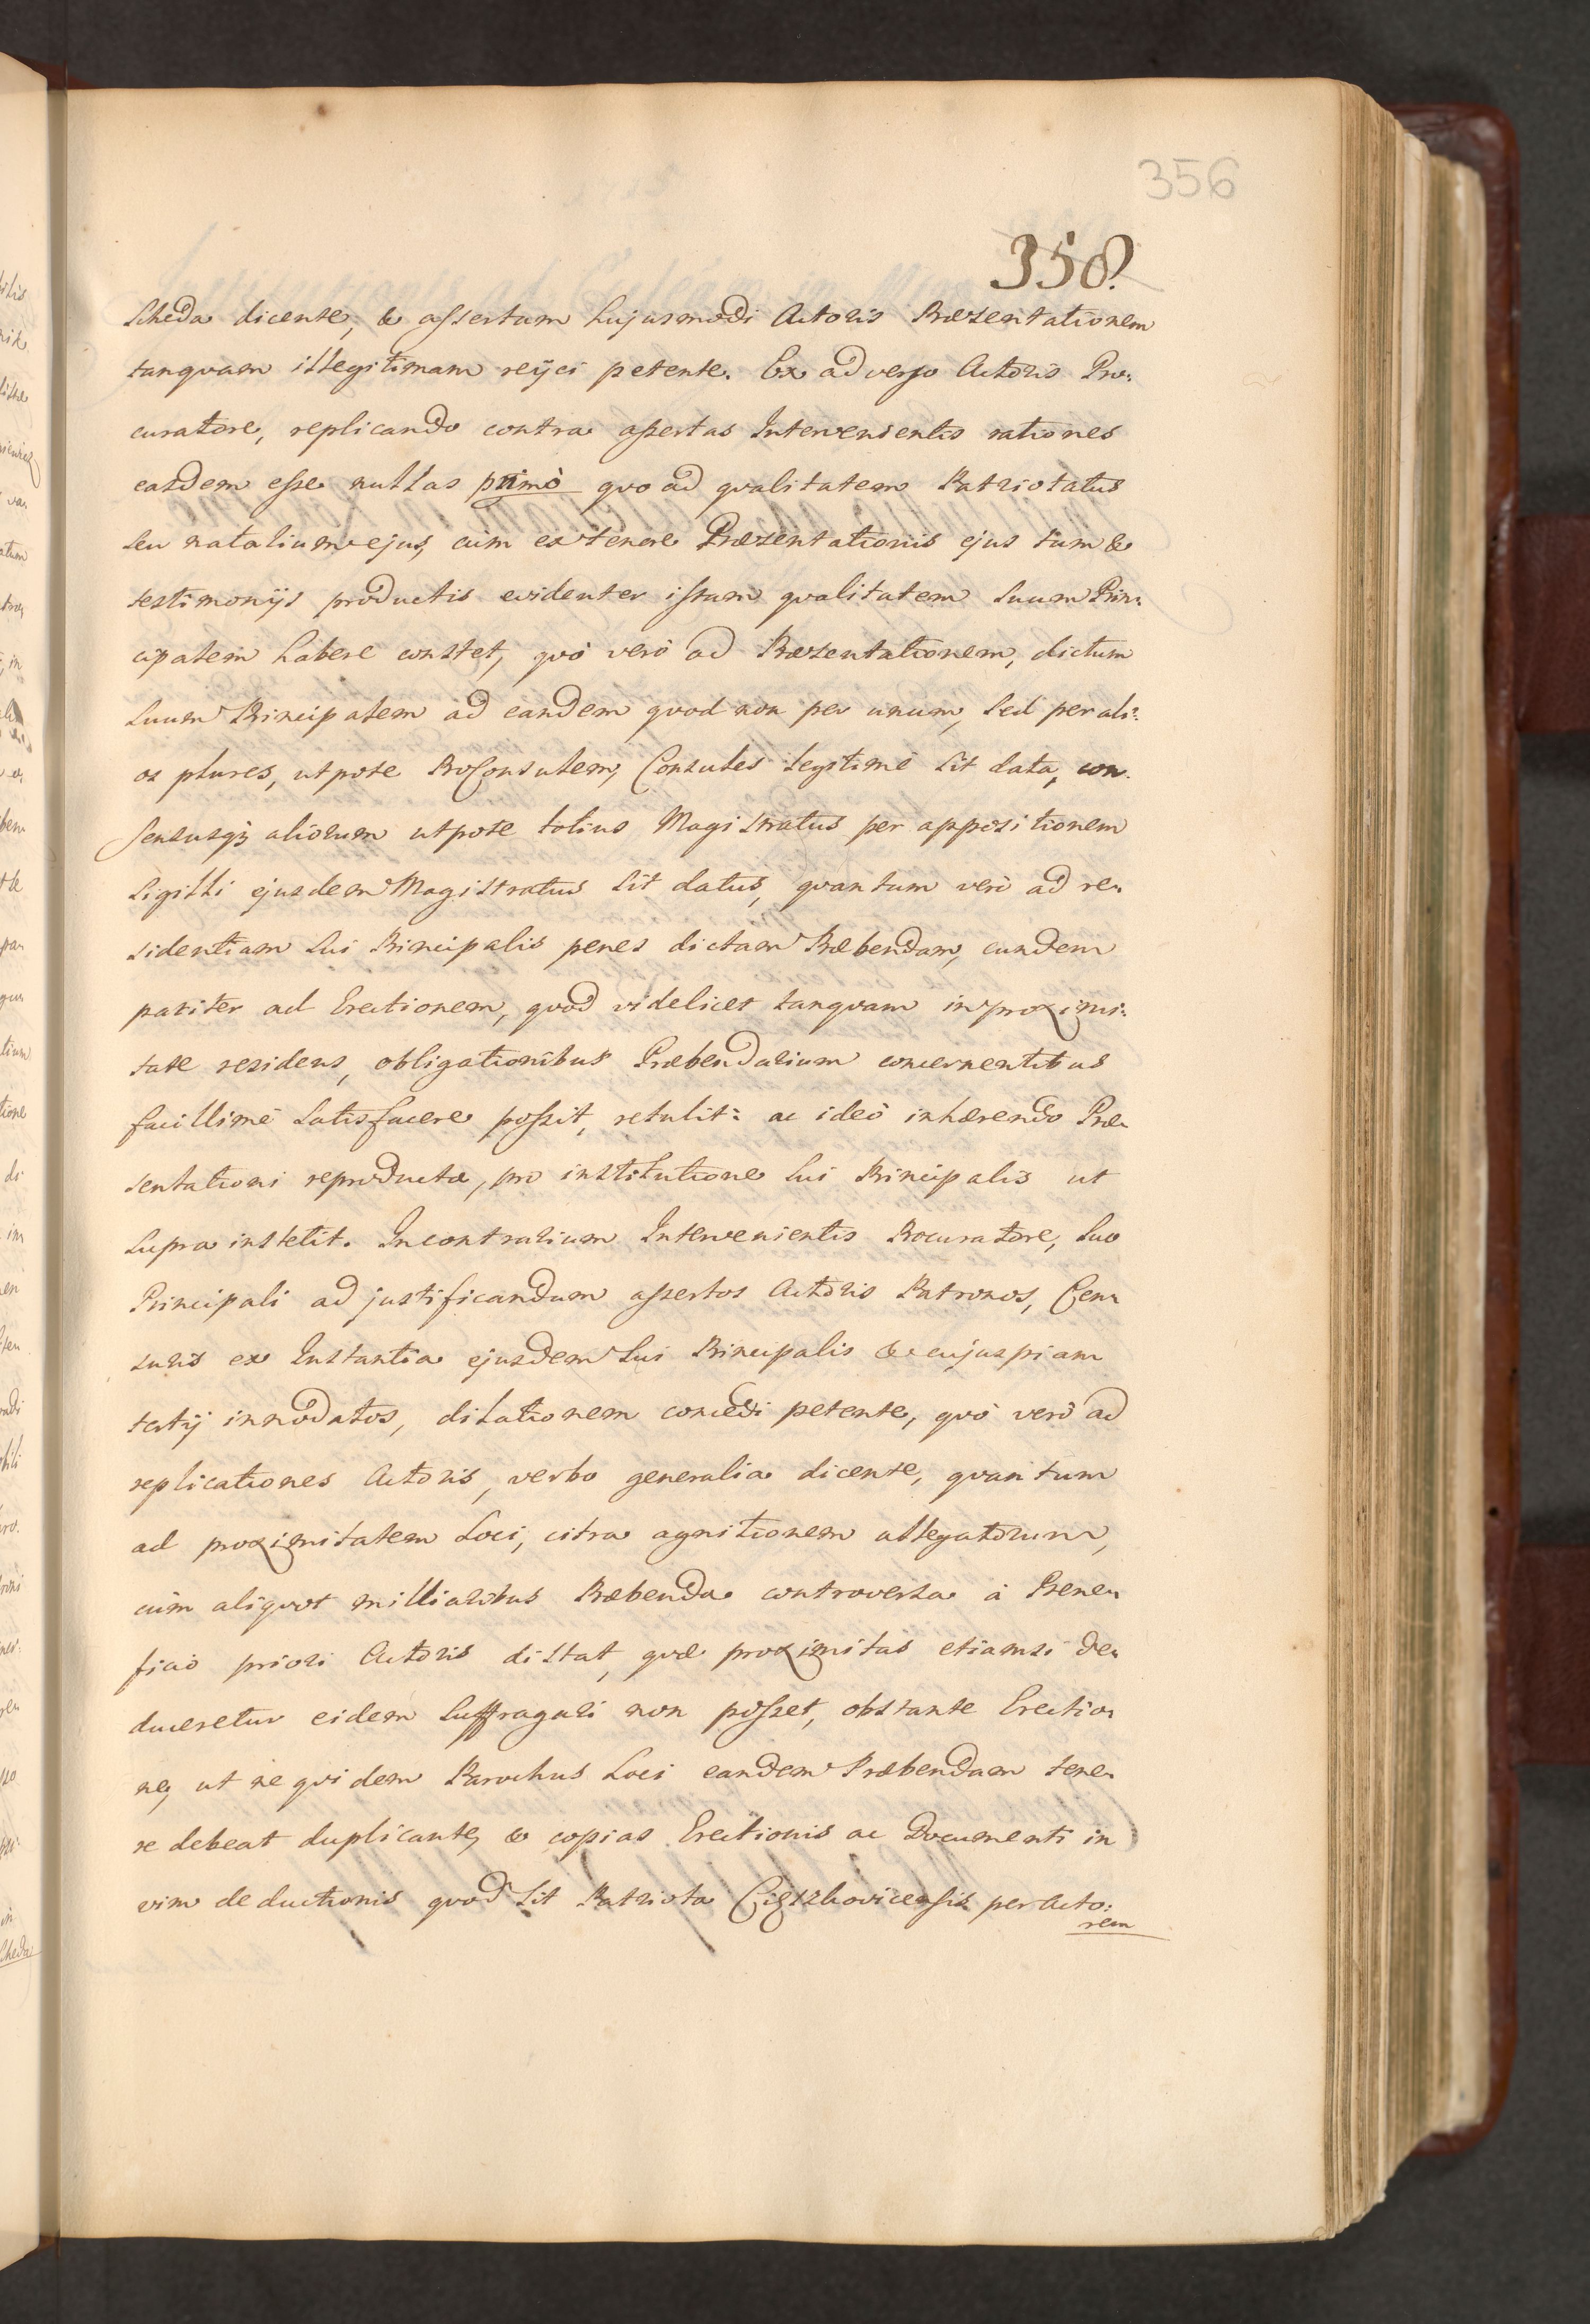 356
358.
Scheda dicente, & assertam hujusmodi Actoris Præzentationem
tanquam illegitimam reijci petente. Ex adverso Actoris Pro:
curatore, replicando contra assertas Intervenientis rationes
easdem esse nullas primò quo ad qvalitatem Patriotatus
seu natalium ejus, cùm ex tenore Præzentationis ejus tum &
testimonijs productis evidenter istam qvalitatem suum Prin:
cipalem habere constet, qvò verò ad Præzentationem, dictum
suum Principalem ad eandem qvod non per unum, sed per ali:
os plures, utpote ProConsulem, Consules legitimè sit data, con
sensusq; aliorum utpote totius Magistratus per appositionem
Sigilli ejusdem Magistratus sit datus, qvantum verò ad re:
sidentiam sui Principalis penes dictam Præbendam, eundem
pariter ad Erectionem, qvod videlicet tanqvam in proximi:
tate residens, obligationibus Præbendarium concernentibus
facillimè satisfacere possit, retulit: ac ideò inhærendo Præ:
sentationi reproductæ, pro institutione sui Principalis ut
supra institit. In contrarium Intervenientis Procuratore, suo
Principali ad justificandum assertos Actoris Patronos, Cen:
suris ex Instantia ejusdem sui Principalis & cujuspiam
tertij innodatos, dilationem concedi petente, qvò verò ad
replicationes Actoris, verbo generalia dicente, qvantum
ad proximitatem Loci, citra agnitionem allegatorum,
cùm aliqvot milliaribus Præbenda controversa à Bene:
ficio priori Actoris distat, qvæ proximitas etiamsi de:
duceretur eidem suffragari non posset, obstante Erectio:
ne, ut ne qvidem Parochus Loci eandem Præbendam tene:
re debeat duplicante, & copias Erectionis ac Documenti in
vim deductionis qvod sit Patriota per Acto:
rem